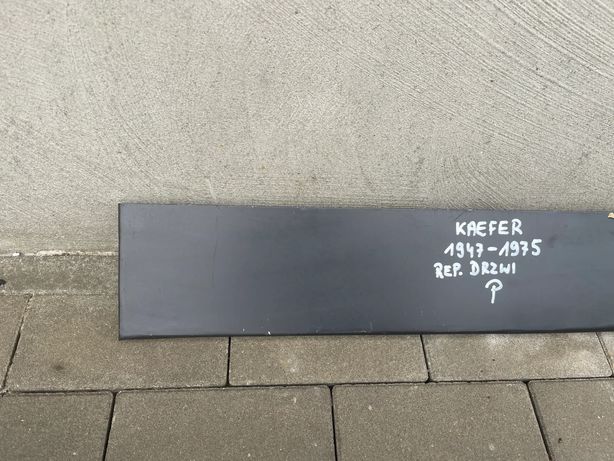 KAEFER
1947-1975
REP. DRZWI
P